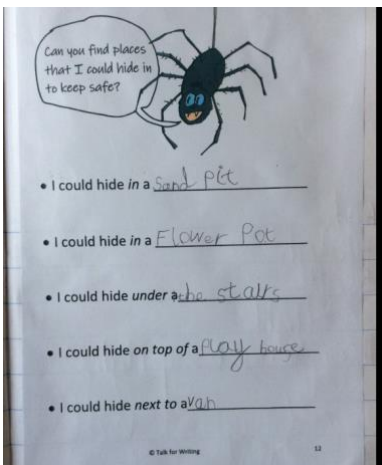 Can you find places
that I could hide in
to keep safe?
• I could hide in a Sand pit
• I could hide in a Flower Pot
• I could hide under a the stairs
• I could hide on top of a Play house
• I could hide next to a van
© Talk for Writing 12